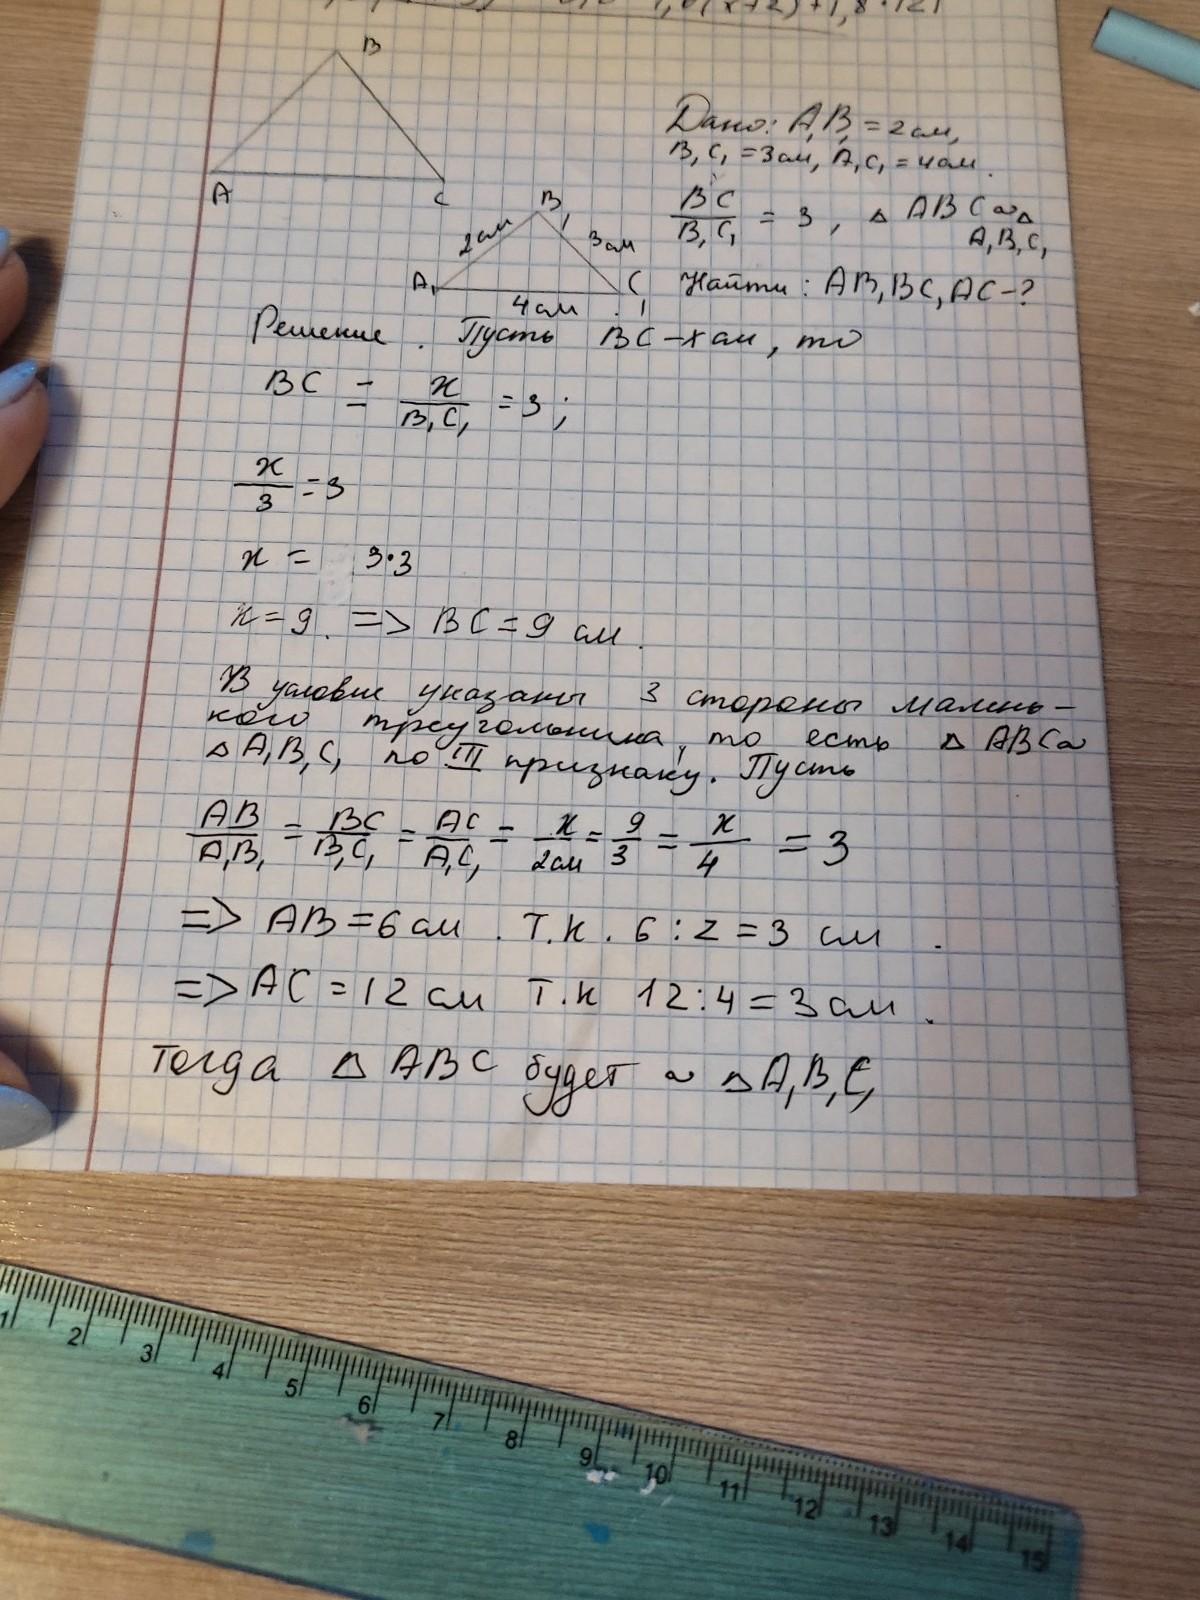 B
A
C
Дано: A₁B₁ = 2 см,
B₁C₁ = 3 см, A₁C₁ = 4 см.
BC/B₁C₁ = 3, △ ABC ~ △
A₁B₁C₁
B₁
2 см
3 см
A₁
C₁
4 см
Найти: AB, BC, AC - ?
Решение. Пусть BC - x см, то
BC = x/B₁C₁ = 3;
x/3 = 3
x = 3·3
x = 9. => BC = 9 см.
В условие указаны 3 стороны малень-
кого треугольника, то есть △ ABC ~
△ A₁B₁C₁ по III признаку. Пусть
AB/A₁B₁ = BC/B₁C₁ = AC/A₁C₁ = x/2см = 9/3 = x/4 = 3
=> AB = 6 см. Т.к. 6 : 2 = 3 см.
=> AC = 12 см Т.к 12 : 4 = 3 см.
Тогда △ ABC будет ~ △ A₁B₁C₁
1 2 3 4 5 6 7 8 9 10 11 12 13 14 15